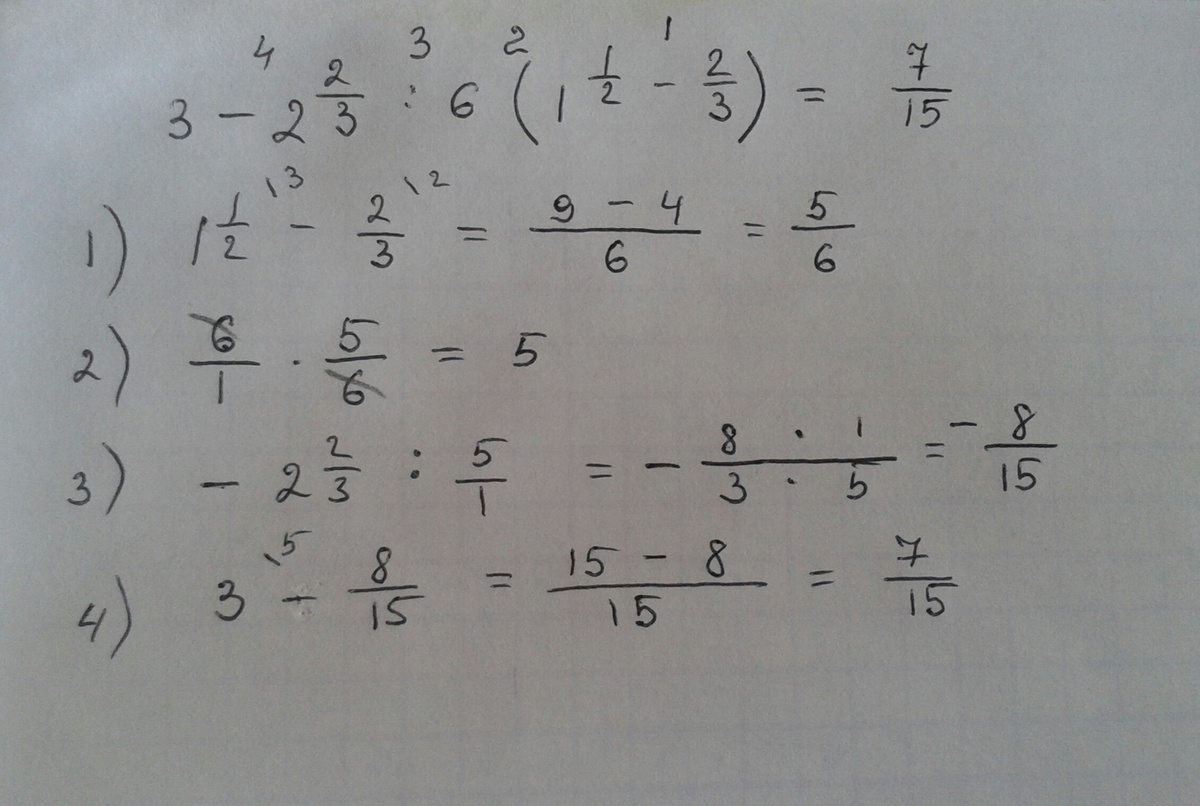 3 - 2 2/3 : 6 (1 1/2 - 2/3) = 7/15
4 3 2 1
1) 1 1/2 \3 - 2/3 \2 = (9 - 4)/6 = 5/6
2) 6/1 · 5/6 = 5
3) - 2 2/3 : 5/1 = - (8 · 1)/(3 · 5) = - 8/15
4) 3 \5 - 8/15 = (15 - 8)/15 = 7/15